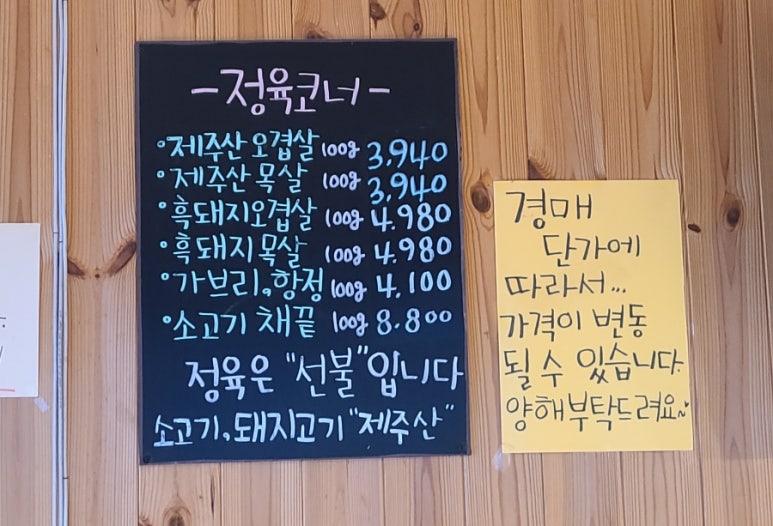 -정육코너-
·제주산 오겹살 100g 3,940
·제주산 목살 100g 3,940
·흑돼지오겹살 100g 4.980
·흑돼지 목살 100g 4.980
·가브리,항정 100g 4.100
·소고기 채끝 100g 8.800
정육은 "선불"입니다
소고기,돼지고기 "제주산"
경매
단가에
따라서...
가격이 변동
될 수 있습니다.
양해부탁드려요~